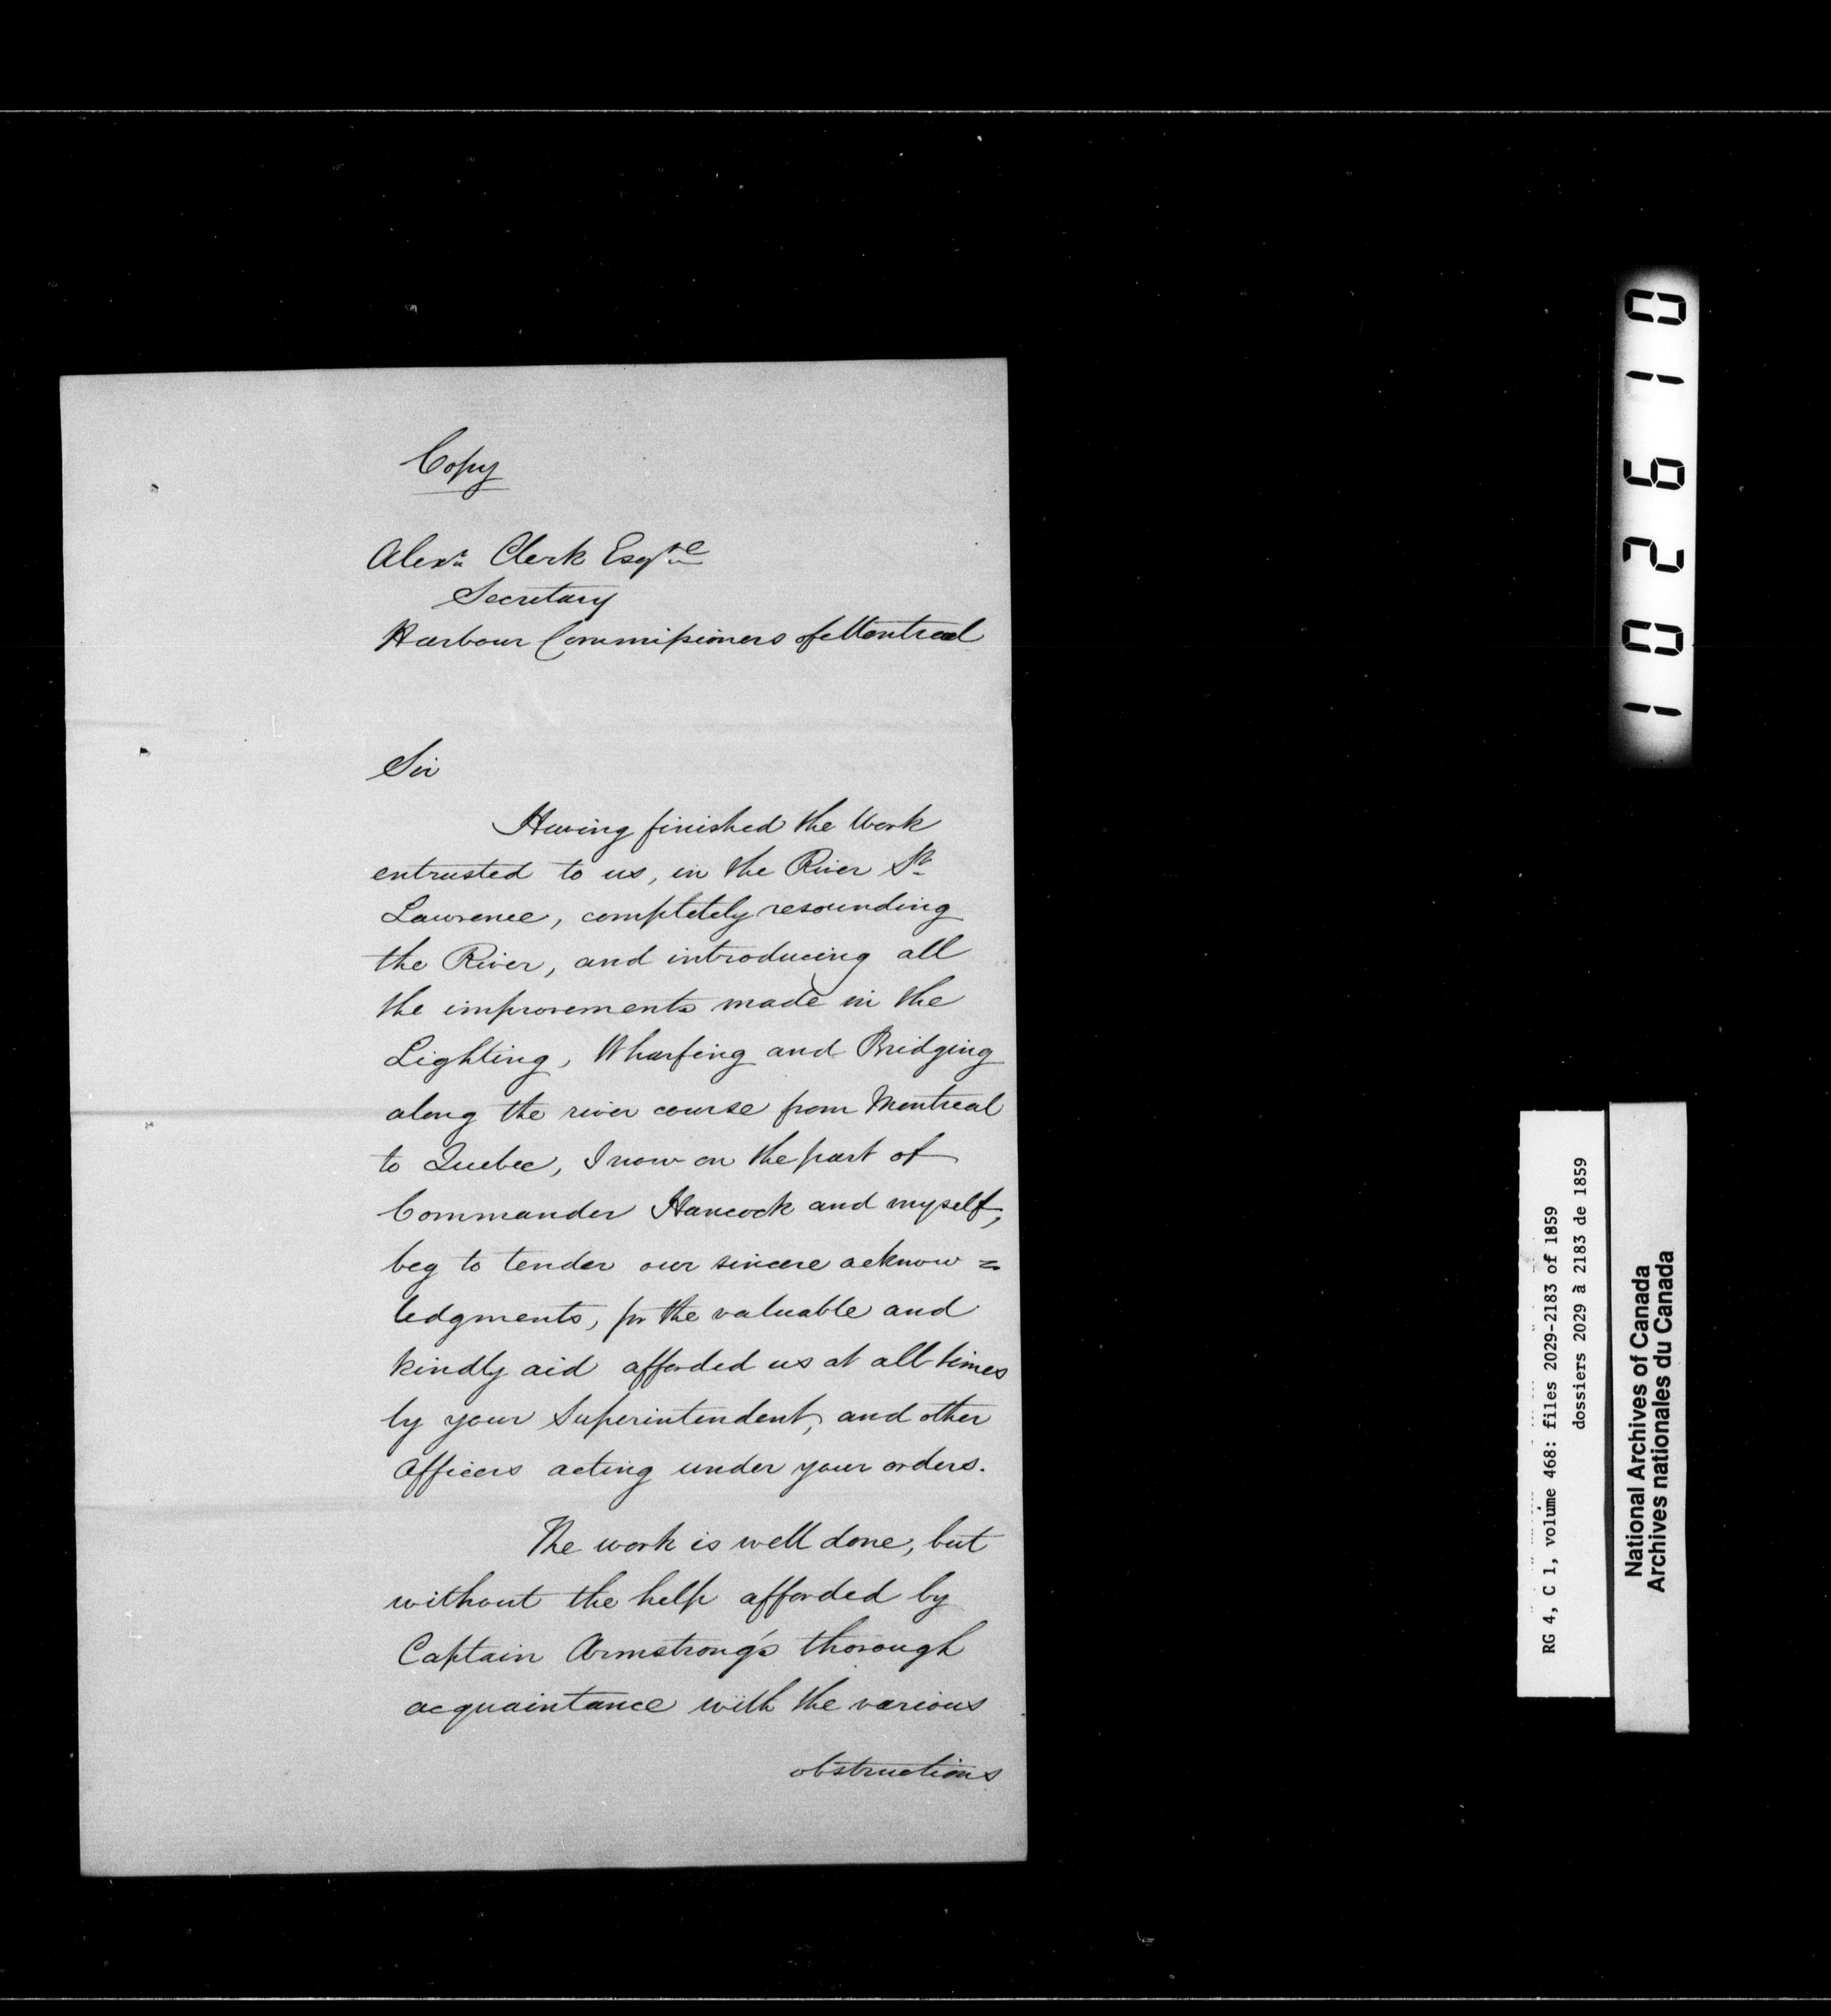 Copy
Alexr Clerk Esqre
Secretary
Harbour Commissioners of Montreal
Sir
Having finished the Work
entrusted to us, in the River St
Lawrence, completely resounding
the River, and introducing all
the improvements made in the
Lighting, Wharfing and Bridging
along the river course from Montreal
to Quebec, I now on the part of
Commander Hancock and myself,
beg to tender our sincere acknow=
ledgments, for the valuable and
kindly aid afforded us at all times
by your Superintendent, and other
Officers acting under your orders.
The work is well done, but
without the help afforded by
Captain Armstrong's thorough
acquaintance with the various
obstructions
102610
RG 4, C 1, volume 468: files 2029-2183 of 1859
dossiers 2029 à 2183 de 1859
National Archives of Canada
Archives nationales du Canada